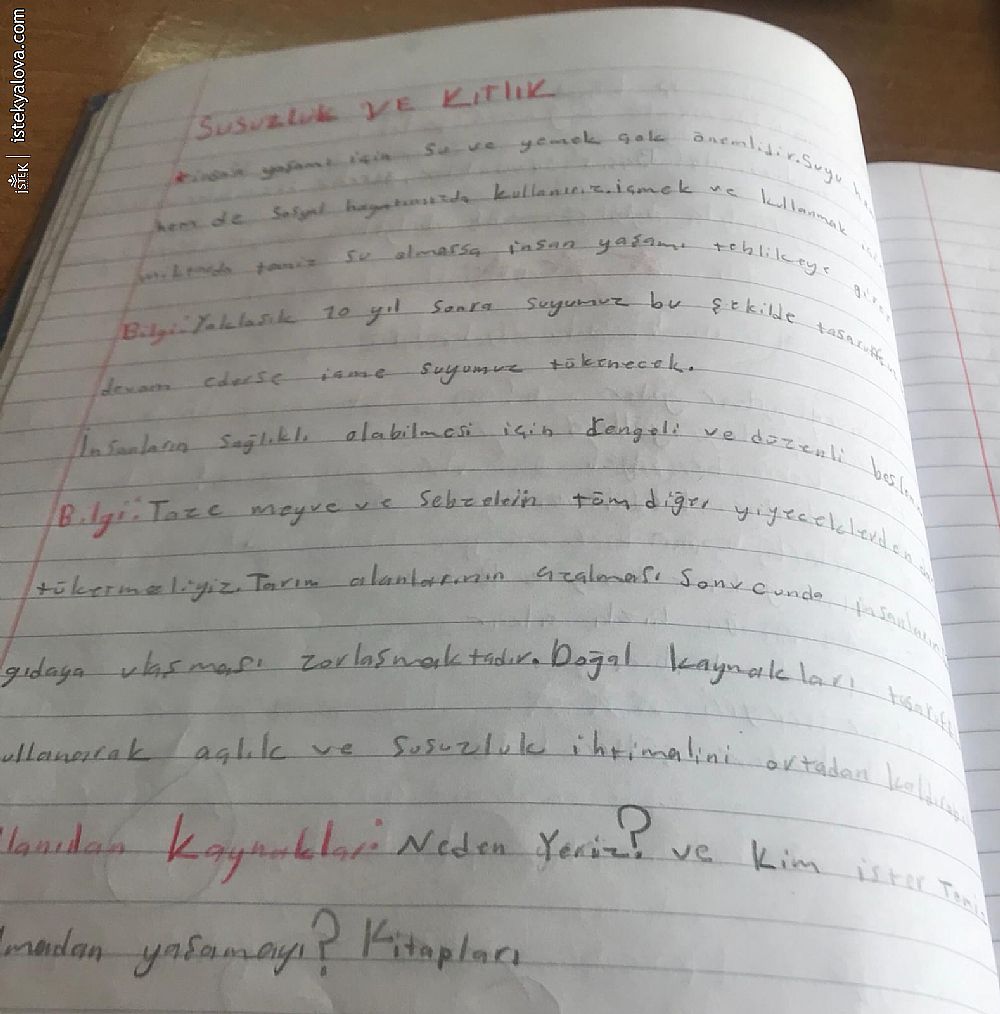 SUSUZLUK VE KITLIK
* insan yaşamı için su ve yemek çok önemlidir. Suyu
hem de sosyal hayatımızda kullanırız. içmek ve kullanmak
temiz su olmassa insan yaşamı tehlikeye girer
Bilgi: Yaklaşık 10 yıl sonra suyumuz bu şekilde
devam ederse içme suyumuz tükenecek.
İnsanların sağlıklı olabilmesi için dengeli ve düzenli
Bilgi: Taze meyve ve sebzelerin tüm diğer yiyeceklerden
tükermeliyiz. Tarım alanlarının azalması sonucunda insanların
gıdaya ulaşması zorlaşmaktadır. Doğal kaynakları
ullanarak açlık ve susuzluk ihtimalini ortadan
lanıdan Kaynakları Neden Yeriz? ve Kim ister Temiz
madan yaşamayı? Kitapları
İSTEK | istekyalova.com